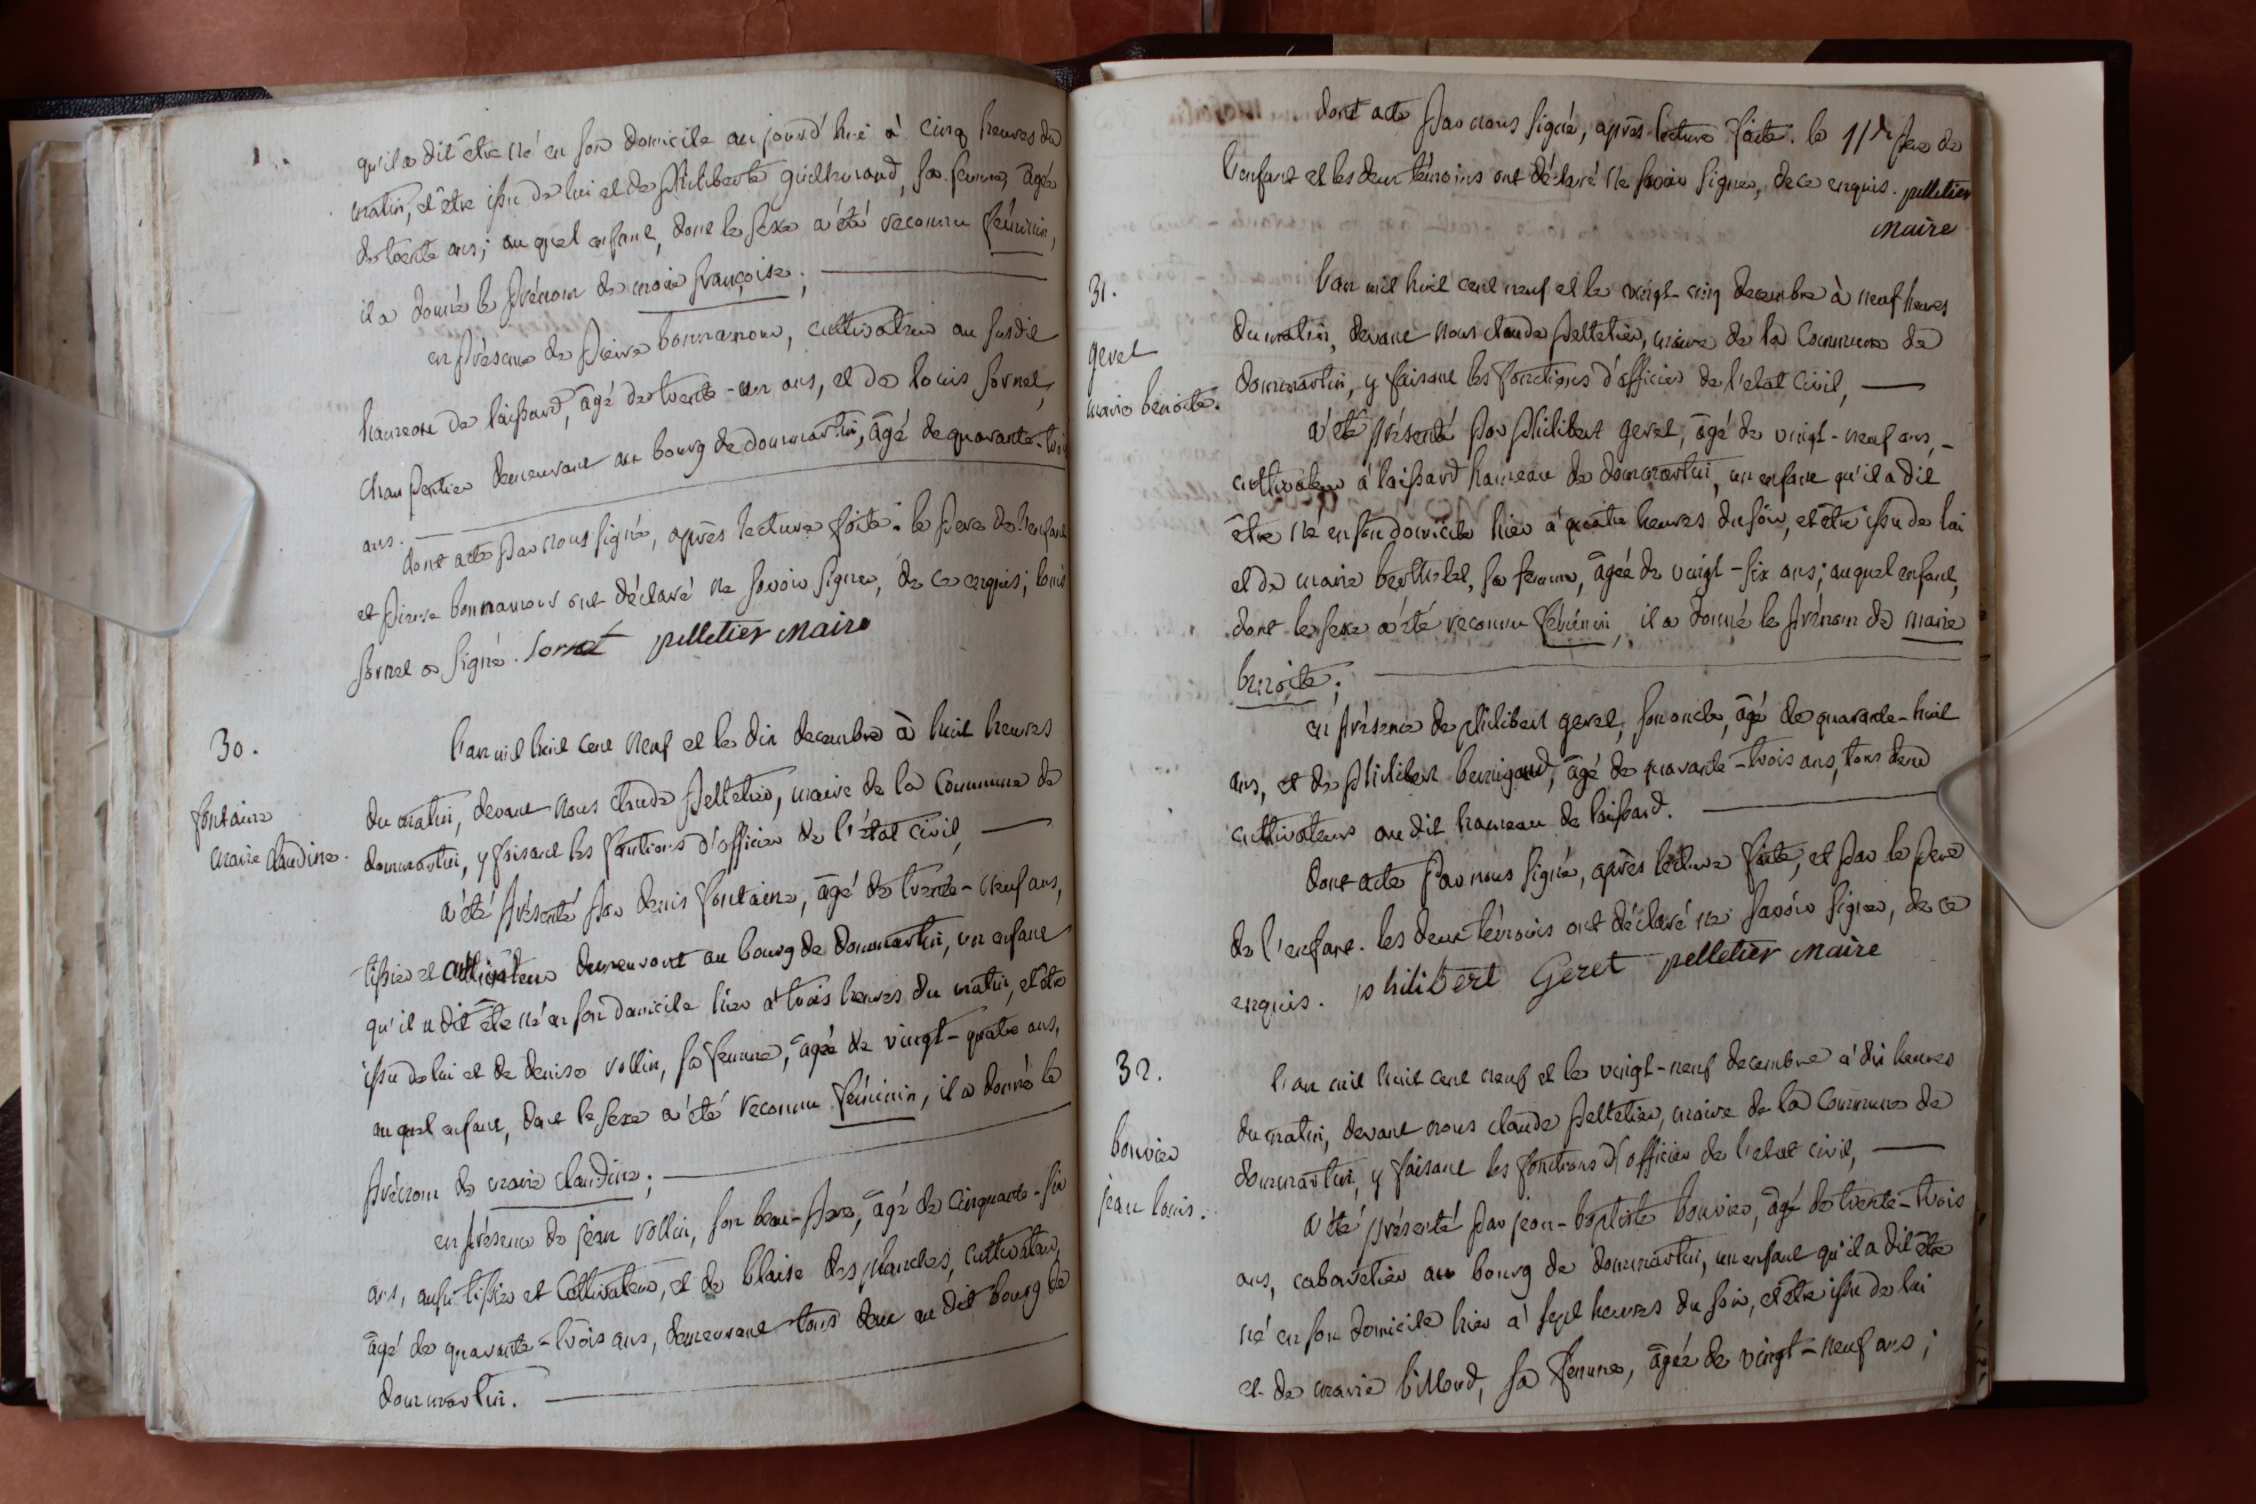 qu'il a dit être né en son domicile aujourd'hui à cinq heures du
matin, et être issu de lui et de philiberte guilhmand, sa femme, âgée
de trente ans; auquel enfant, dont le sexe a été reconnu féminin,
il a donné le prénom de marie françoise;
en présence de pierre bonnamour, cultivateur au susdit
hameau de laissard, âgé de trente-un ans, et de louis sornet,
charpentier demeurant au bourg de dommartin, âgé de quarante-trois
ans.
dont acte par nous signé, après lecture faite. le pere de l'enfant
et pierre bonnamour ont déclaré ne savoir signer, de ce enquis; louis
sornet a signé. Sornet pelletier maire
30.
fontaine
marie claudine.
l'an mil huit cent neuf et le dix decembre à huit heures
du matin, devant nous claude pelletier, maire de la commune de
dommartin, y faisant les fonctions d'officier de l'état civil,
a été présenté par denis fontaine, âgé de trente-neuf ans,
tissier et cultivateur demeurant au bourg de dommartin, un enfant
qu'il a dit être né en son domicile hier à trois heures du matin, et être
issu de lui et de denise vollin, sa femme, âgée de vingt-quatre ans,
auquel enfant, dont le sexe a été reconnu féminin, il a donné le
prénom de marie claudine;
en présence de jean vollin, son beau-pere, âgé de cinquante-six
ans, aussi tissier et cultivateur, et de blaise desplanches, cultivateur,
âgé de quarante-trois ans, demeurant tous deux au dit bourg de
dommartin.
dont acte par nous signé, après lecture faite. le pere de
l'enfant et les deux témoins ont déclaré ne savoir signer, de ce enquis. pelletier
maire
31.
geret
marie benoite.
l'an mil huit cent neuf et le vingt-cinq decembre à neuf heures
du matin, devant nous claude pelletier, maire de la commune de
dommartin, y faisant les fonctions d'officier de l'etat civil,
a été présenté par philibert geret, âgé de vingt-neuf ans,
cultivateur à laissard hameau de dommartin, un enfant qu'il a dit
être né en son domicile hier à quatre heures du soir, et être issu de lui
et de marie berthelet, sa femme, âgée de vingt-six ans; auquel enfant,
dont le sexe a été reconnu féminin, il a donné le prénom de marie
benoite;
en présence de philibert geret, son oncle, âgé de quarante-huit
ans, et de philibert benigaud, âgé de quarante-trois ans, tous deux
cultivateurs au dit hameau de laissard.
dont acte par nous signé, après lecture faite, et par le pere
de l'enfant. les deux témoins ont déclaré ne savoir signer, de ce
enquis. philibert Geret pelletier maire
32.
bouvier
jean louis.
l'an mil huit cent neuf et le vingt-neuf decembre à dix heures
du matin, devant nous claude pelletier, maire de la commune de
dommartin, y faisant les fonctions d'officier de l'etat civil,
a été présenté par jean-baptiste bouvier, âgé de trente-trois
ans, cabaretier au bourg de dommartin, un enfant qu'il a dit être
né en son domicile hier à sept heures du soir, et être issu de lui
et de marie billoud, sa femme, âgée de vingt-neuf ans;